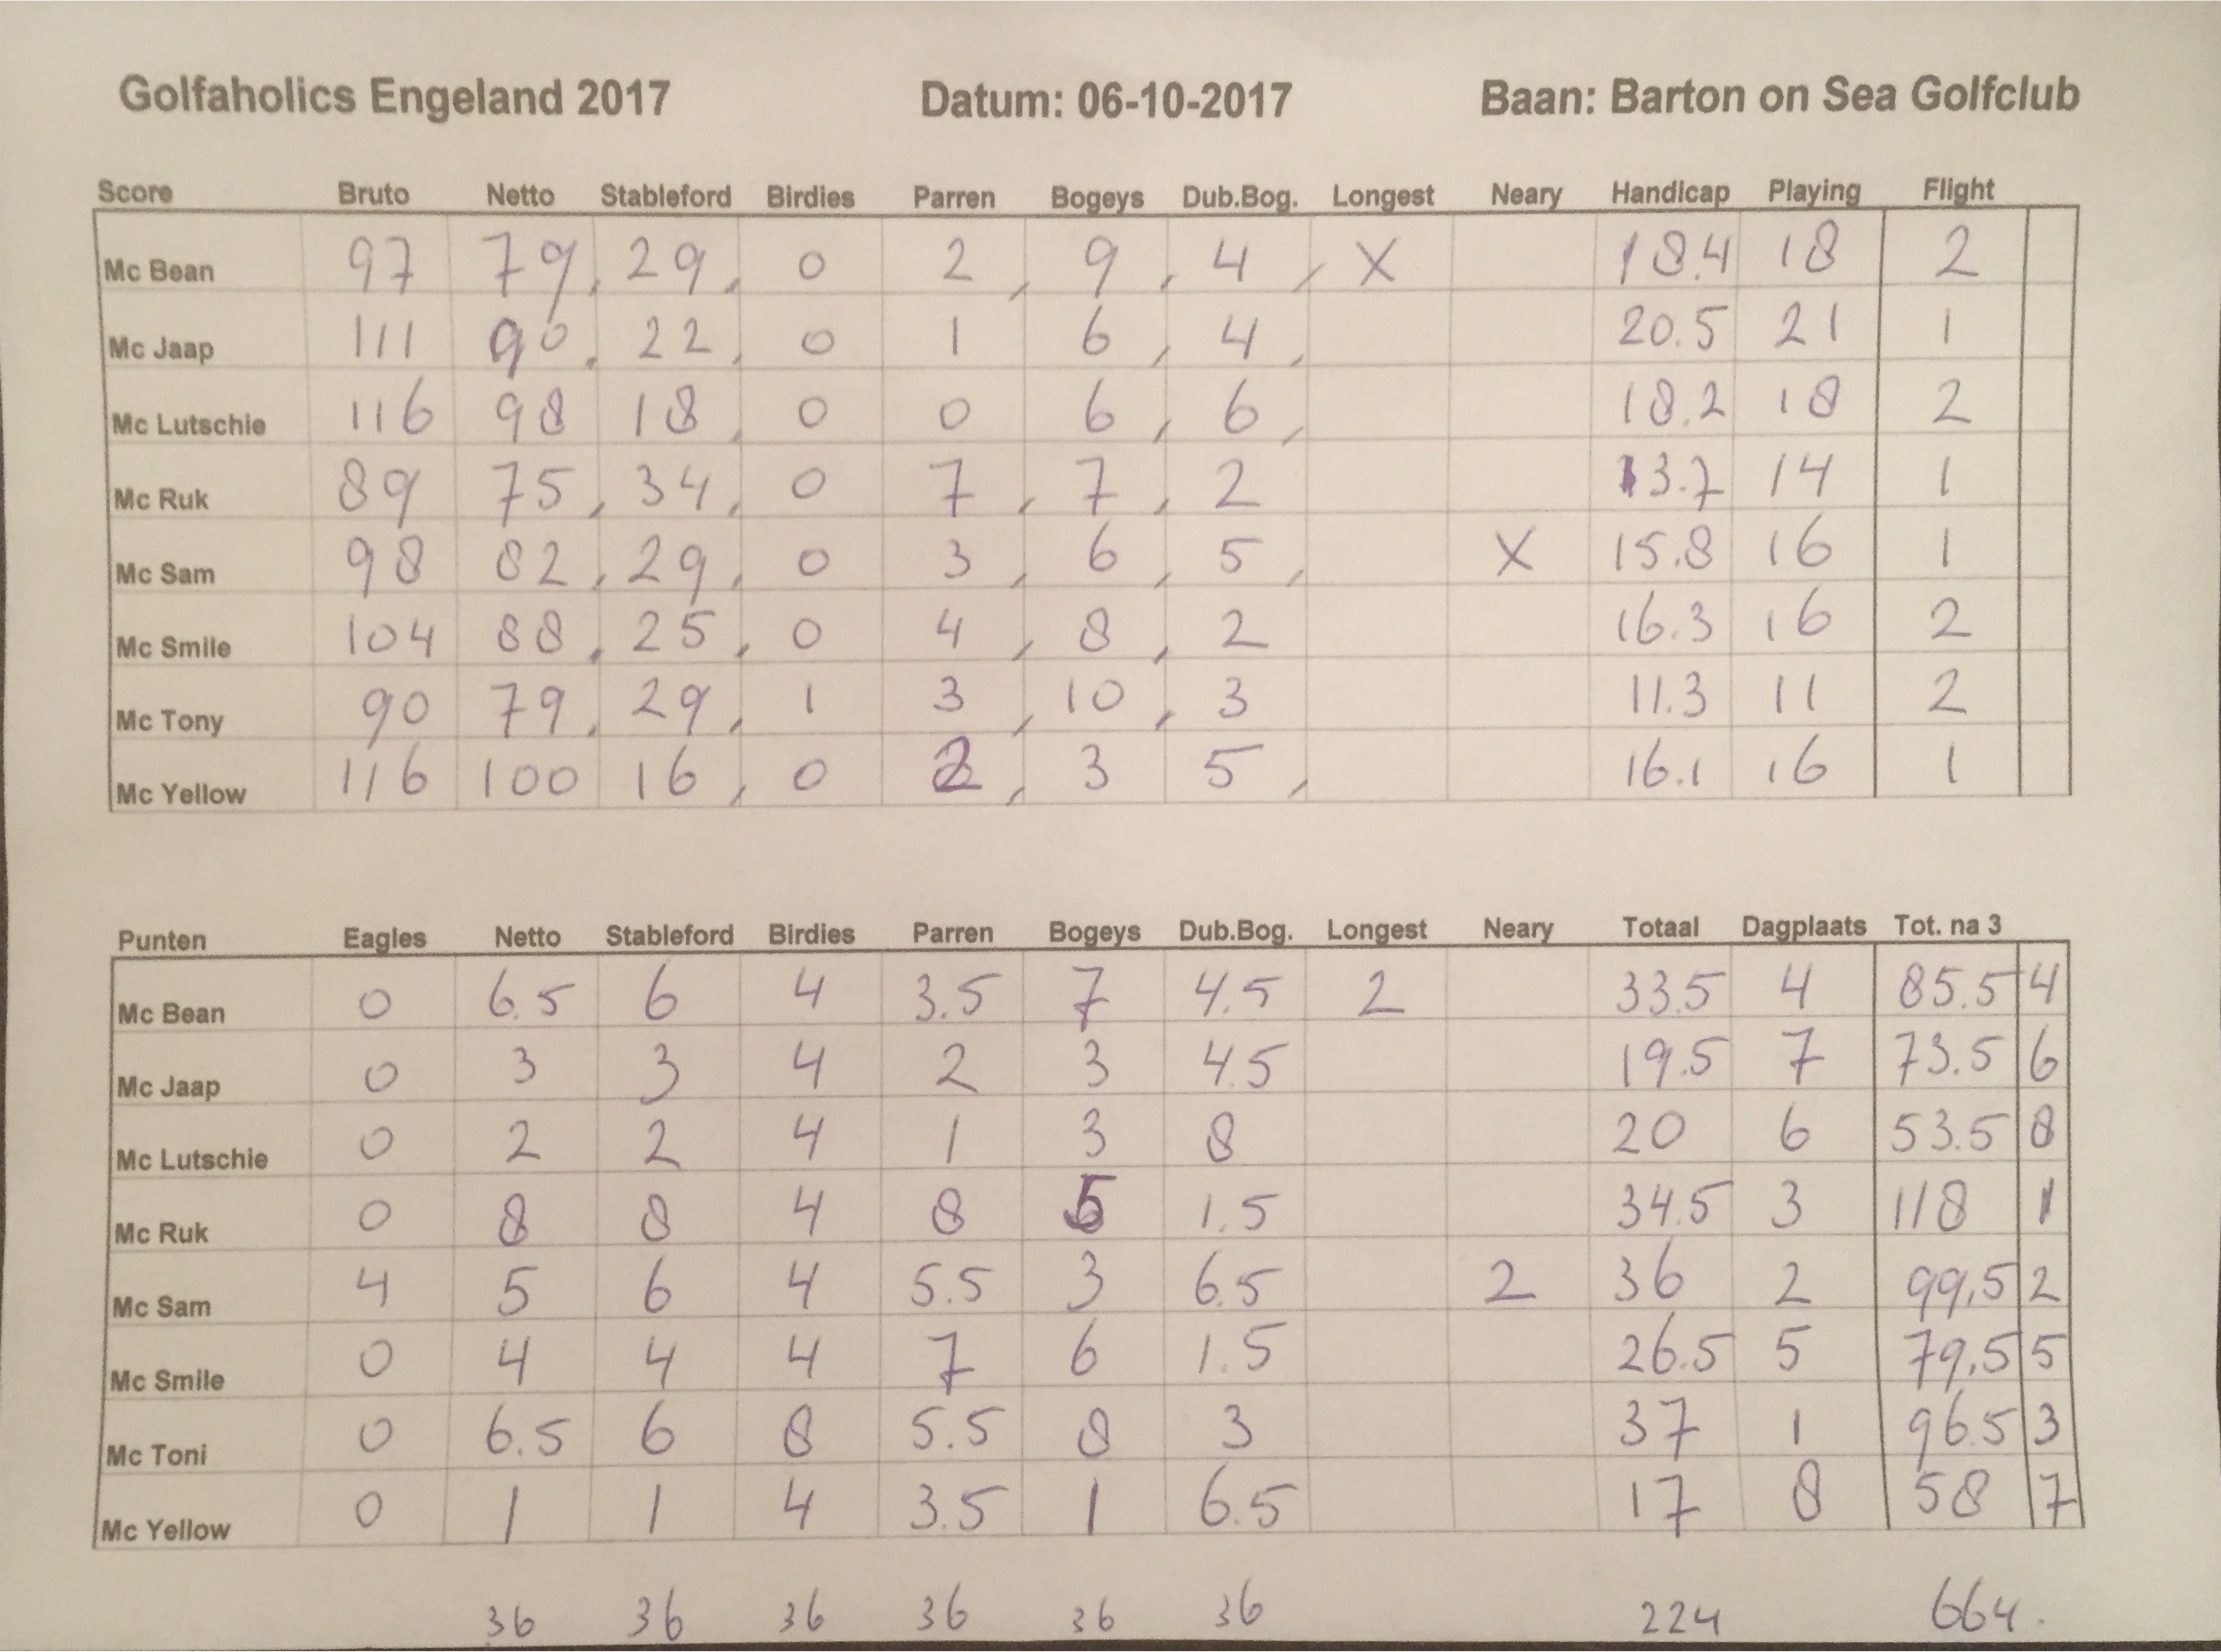 Golfaholics Engeland 2017 Datum: 06-10-2017 Baan: Barton on Sea Golfclub
Score Bruto Netto Stableford Birdies Parren Bogeys Dub.Bog. Longest Neary Handicap Playing Flight
Mc Bean 97 79 29 0 2 9 4 X 18.4 18 2
Mc Jaap 111 90 22 0 1 6 4 20.5 21 1
Mc Lutschie 116 98 18 0 0 6 6 18.2 18 2
Mc Ruk 89 75 34 0 7 7 2 13.7 14 1
Mc Sam 98 82 29 0 3 6 5 X 15.8 16 1
Mc Smile 104 88 25 0 4 8 2 16.3 16 2
Mc Tony 90 79 29 1 3 10 3 11.3 11 2
Mc Yellow 116 100 16 0 2 3 5 16.1 16 1
Punten Eagles Netto Stableford Birdies Parren Bogeys Dub.Bog. Longest Neary Totaal Dagplaats Tot. na 3
Mc Bean 0 6.5 6 4 3.5 7 4.5 2 33.5 4 85.5 4
Mc Jaap 0 3 3 4 2 3 4.5 19.5 7 73.5 6
Mc Lutschie 0 2 2 4 1 3 8 20 6 53.5 8
Mc Ruk 0 8 8 4 8 5 1.5 34.5 3 118 1
Mc Sam 4 5 6 4 5.5 3 6.5 2 36 2 99,5 2
Mc Smile 0 4 4 4 7 6 1.5 26.5 5 79,5 5
Mc Toni 0 6.5 6 8 5.5 8 3 37 1 96.5 3
Mc Yellow 0 1 1 4 3.5 1 6.5 17 8 58 7
36 36 36 36 36 36 224 664.